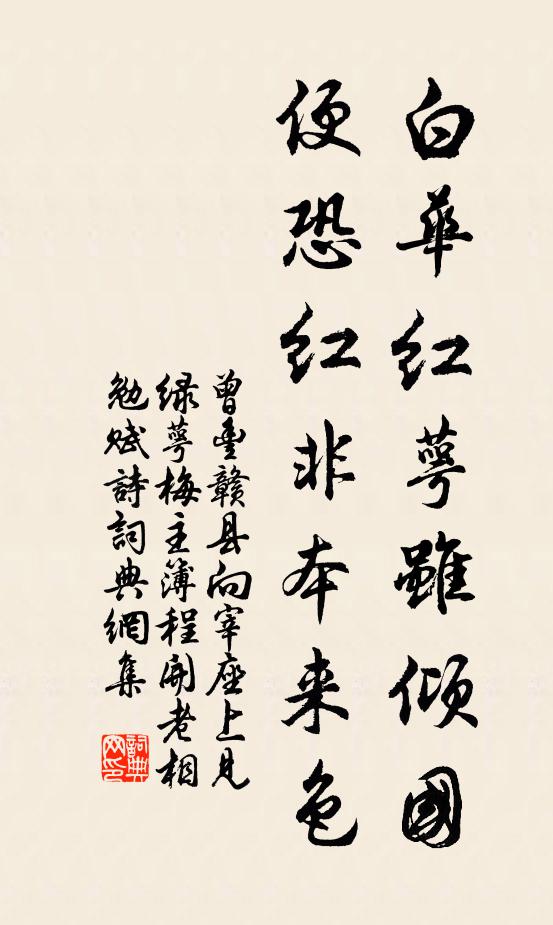 白華紅萼雖傾國
便恐紅非本来色
曾豐贛县向宰座上見
绿萼梅主簿程開老相
勉赋詩詞典網集
詞典网印